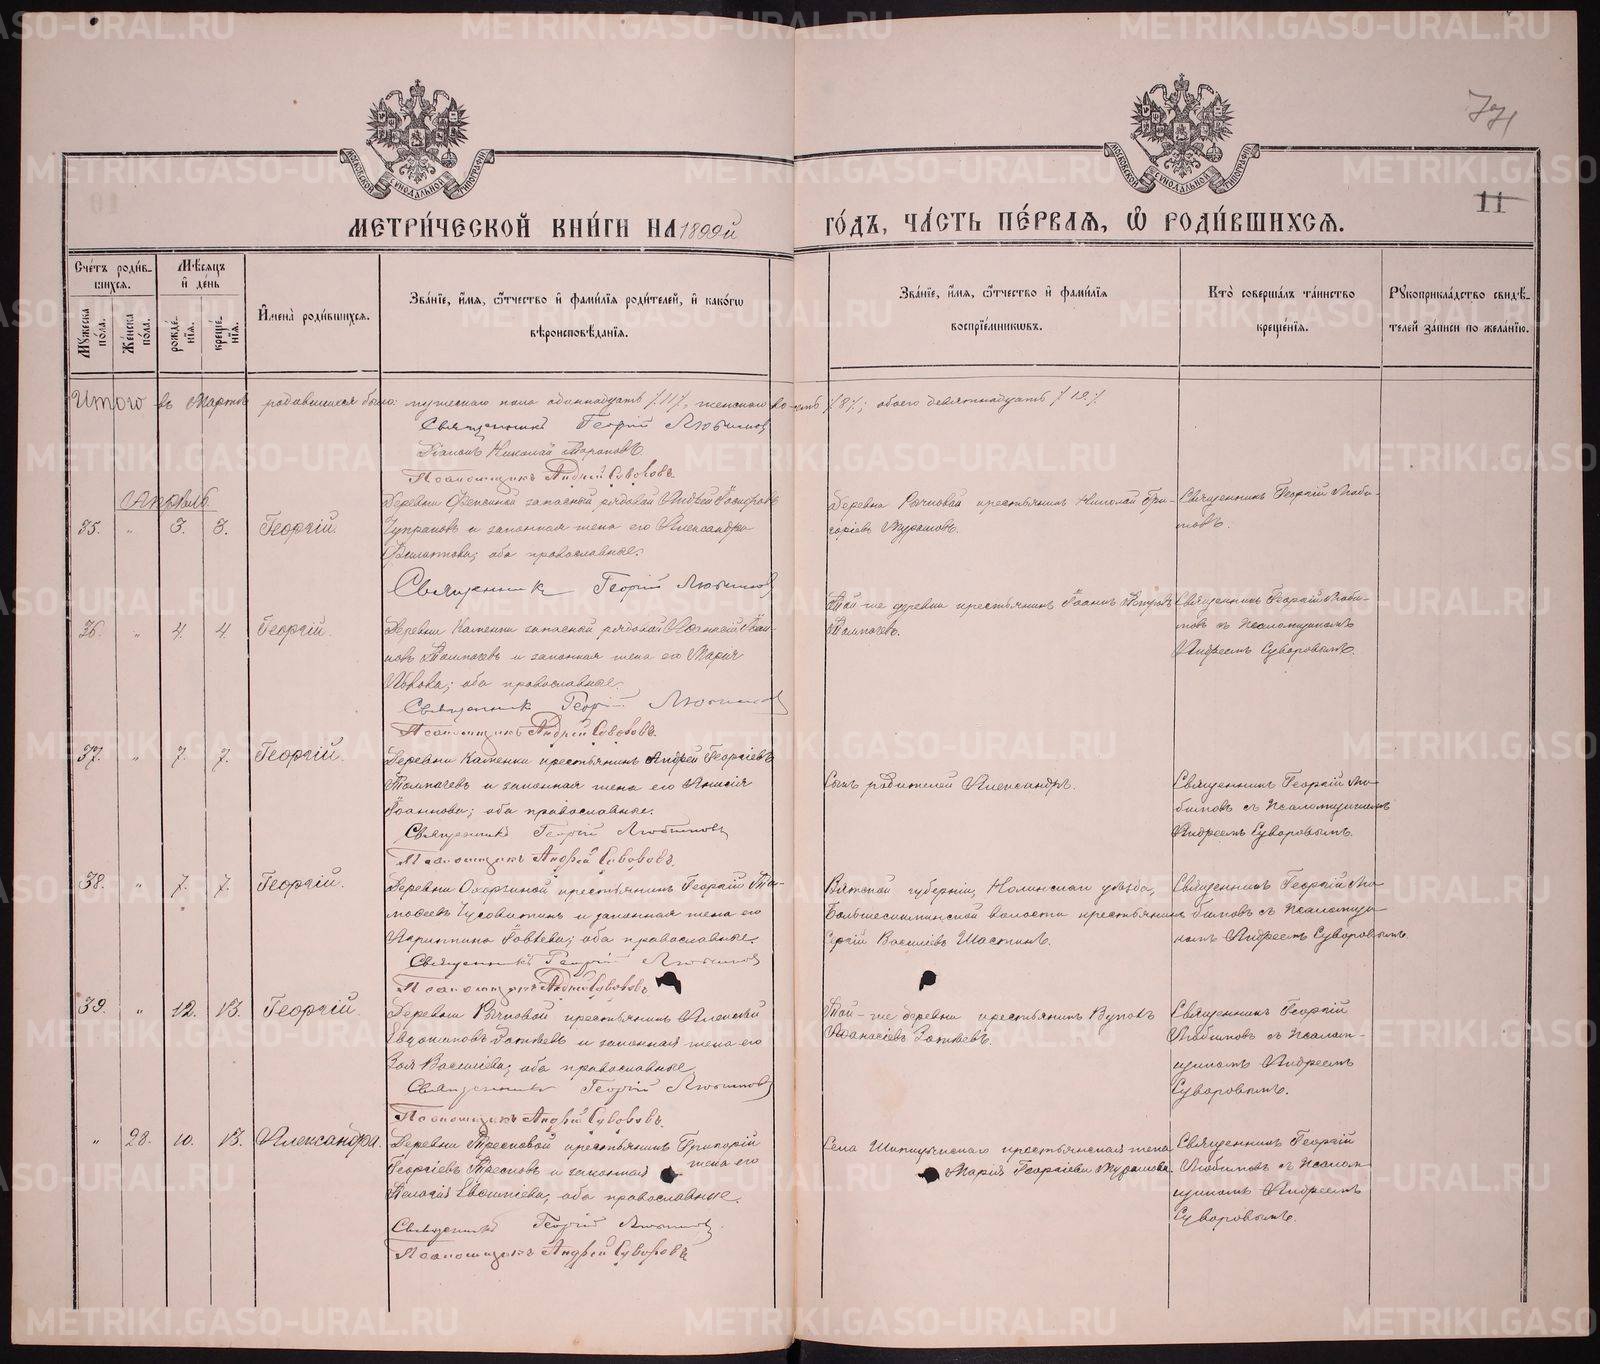 771
11
МЕТРИ́ЧЕСКОЙ КНИ́ГИ НА 1899й ГО́ДЪ, ЧА́СТЬ ПЕ́РВАЯ, Ѡ҆ РОДИ́ВШИХСЯ.
МОСКОВСКОЙ СѴНОДАЛЬНОЙ ТИПОГРАФІИ
МОСКОВСКОЙ СѴНОДАЛЬНОЙ ТИПОГРАФІИ
Сче́тъ роди́в-
шихся.
Мѣ́сяцъ
и҆ де́нь
Мꙋжеска по́ла.
Же́нска по́ла.
рожде́нїѧ.
креще́нїѧ.
И҆мена̀ роди́вшихся.
Зва́нїе, и҆́мя, ѻ҆́тчество и҆ фами́лїя роди́телей, и҆ како́гѡ
вѣроисповѣ́данїя.
Зва́нїе, и҆́мя, ѻ҆́тчество и҆ фами́лїя
воспрїе́мниковъ.
Кто̀ соверша́лъ та́инство
креще́нїя.
Рꙋкоприкла́дство свидѣ́-
телей за́писи по жела́нїю.
Итого въ Мартѣ родившихся было: мужескаго пола одиннадцать /11/, женскаго восемь /8/; обоего девятнадцать /19/
Священникъ Георгій Любимовъ
Діаконъ Николай
Псаломщикъ Андрей Суворовъ
Апрѣль
35. " 3. 3. Георгій.
Деревни запасной рядовой Андрей
и законная жена его Александра
оба православные.
Священникъ Георгій Любимовъ
Деревни крестьянинъ Николай Гри-
горіевъ
Священникъ Георгій Люби-
мовъ.
36. " 4. 4. Георгій.
Деревни Каменки запасной рядовой Іоан-
новъ Толмачевъ и законная жена его Марія
оба православные.
Священникъ Георгій Любимовъ
Псаломщикъ Андрей Суворовъ.
Той-же деревни крестьянинъ Іоаннъ Петровъ
Толмачевъ.
Священникъ Георгій Люби-
мовъ съ Псаломщикомъ
Андреемъ Суворовымъ.
37. " 7. 7. Георгій.
Деревни Каменки крестьянинъ Андрей Георгіевъ
Толмачевъ и законная жена его Анисія
Іоаннова; оба православные.
Священникъ Георгій Любимовъ
Псаломщикъ Андрей Суворовъ.
Сынъ родителей Александръ.
Священникъ Георгій Лю-
бимовъ съ Псаломщикомъ
Андреемъ Суворовымъ.
38. " 7. 7. Георгій.
Деревни крестьянинъ Георгій Ти-
моѳеевъ Чусовитинъ и законная жена его
Акриппина Іовлева; оба православные.
Священникъ Георгій Любимовъ
Псаломщикъ Андрей Суворовъ
Вятской губерніи, Нолинскаго уѣзда,
волости крестьянинъ
Сергій Василіевъ
Священникъ Георгій Лю-
бимовъ съ Псаломщи-
комъ Андреемъ Суворовымъ.
39. " 12. 13. Георгій.
Деревни крестьянинъ Алексѣй
Евдокимовъ и законная жена его
Зоя Василіева; оба православные
Священникъ Георгій Любимовъ
Псаломщикъ Андрей Суворовъ.
Той-же деревни крестьянинъ
Аѳанасіевъ
Священникъ Георгій
Любимовъ съ Псалом-
щикомъ Андреемъ
Суворовымъ.
" 28. 10. 13. Александра.
Деревни Тресковой крестьянинъ Григорій
Георгіевъ Тресковъ и законная жена его
Пелагія оба православные.
Священникъ Георгій Любимовъ.
Псаломщикъ Андрей Суворовъ
Села крестьянская жена
Марія Георгіева
Священникъ Георгій
Любимовъ съ Псалом-
щикомъ Андреемъ
Суворовымъ.
METRIKI.GASO-URAL.RU